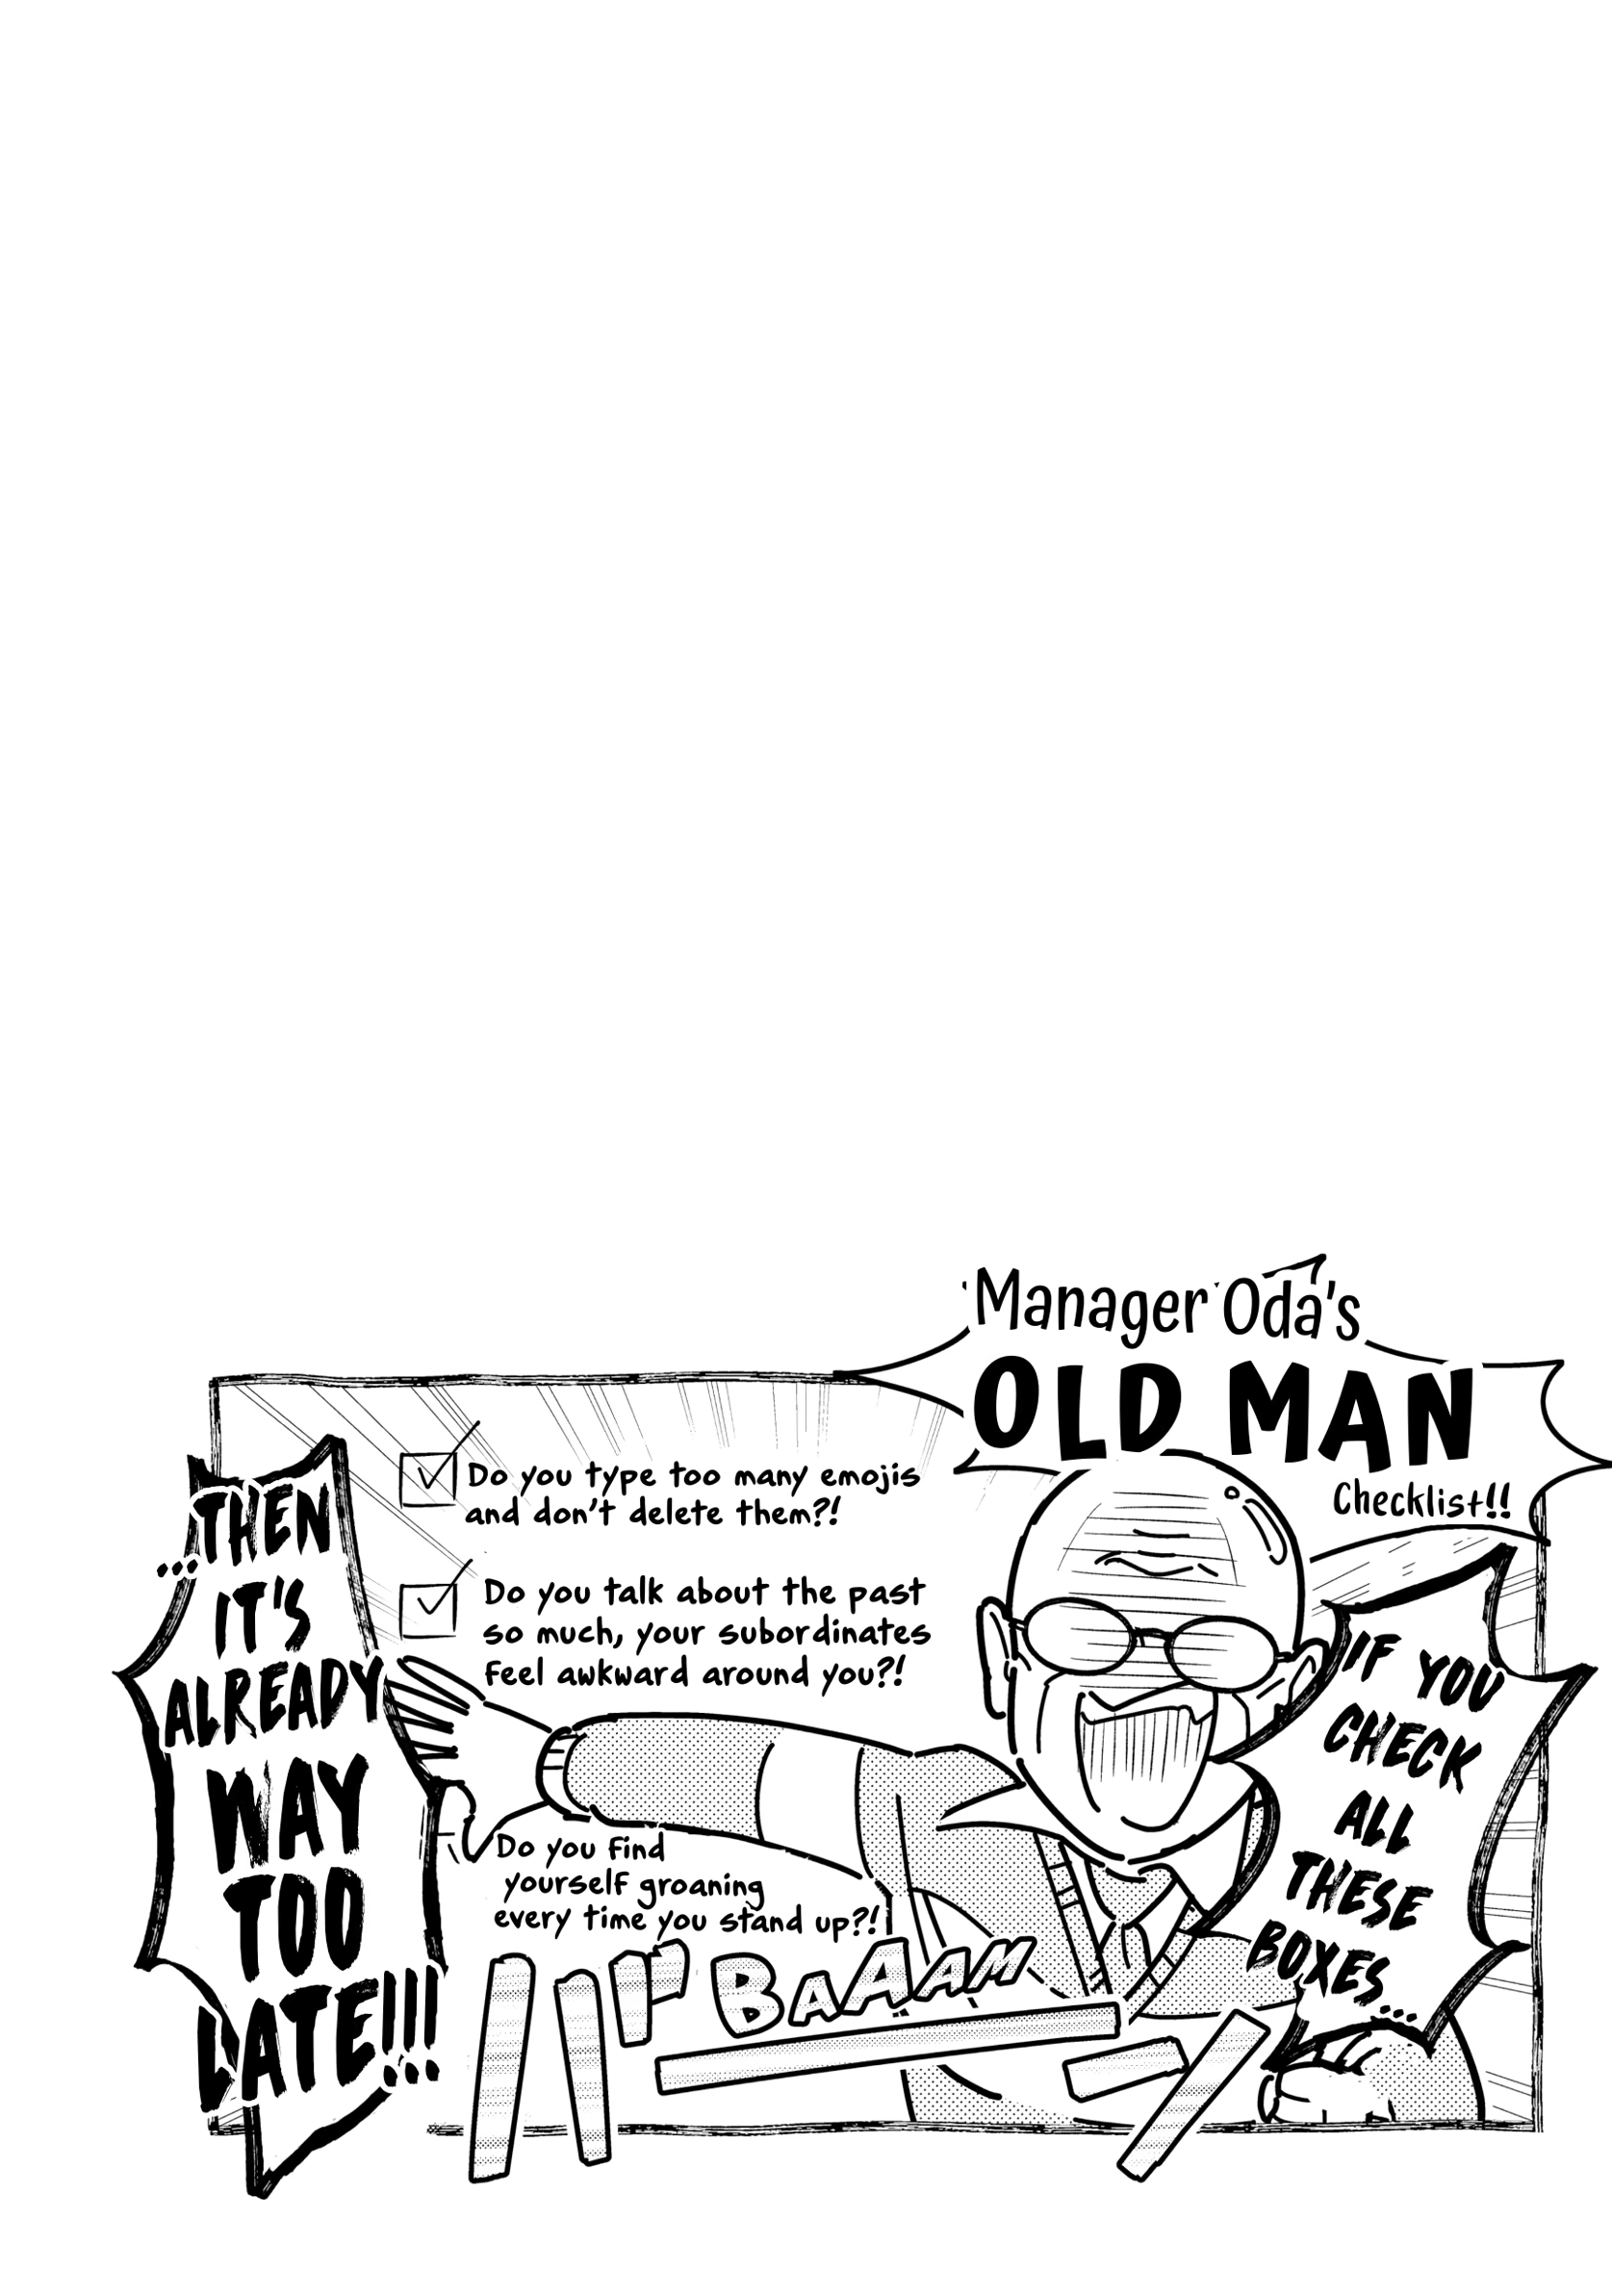 Manager Oda's
OLD MAN
Checklist!!
IF YOU
CHECK
ALL
THESE
BOXES...
Do you type too many emojis
and don't delete them?!
Do you talk about the past
so much, your subordinates
feel awkward around you?!
Do you find
yourself groaning
every time you stand up?!
BAAAAM
...THEN
IT'S
ALREADY
WAY
TOO
LATE!!!